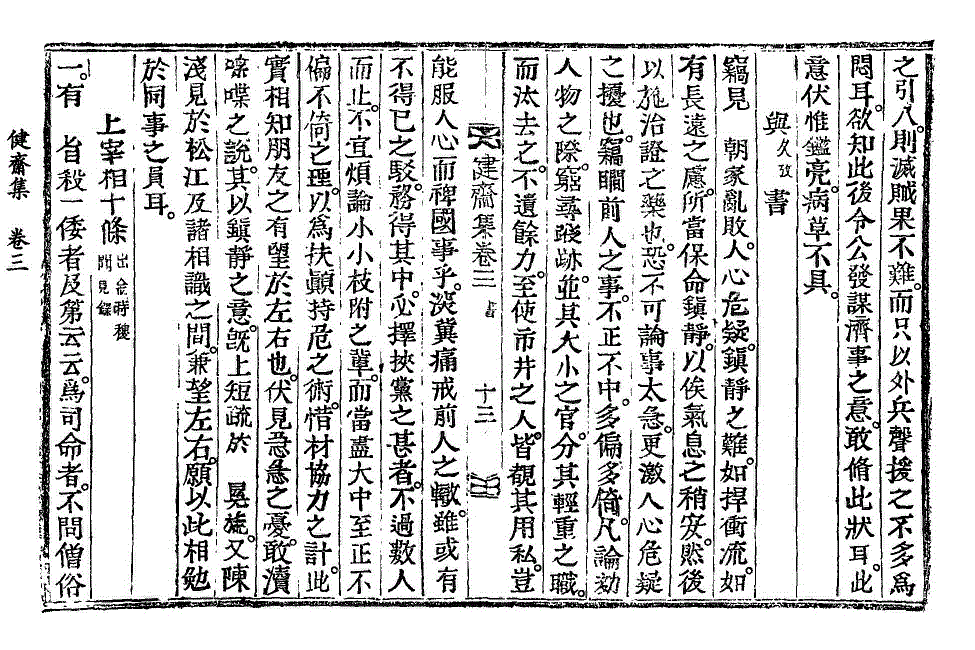 之引入則滅賊果不難而只以外兵聲援之不多爲
悶耳欲知此後令公發謀濟事之意敢脩此狀耳此
意伏惟鑑亮病草不具
與久攷書
竊見 朝家亂敗人心危疑鎭靜之難如捍衝流如
有長遠之慮所當保命鎭靜以俟氣息之稍安然後
以施治證之藥也恐不可論事太急更激人心危疑
之擾也竊瞯前人之事不正不中多偏多倚凡論劾
人物之際窮尋跡並其大小之官分其輕重之職
而汰去之不遺餘力至使市井之人皆覩其用私豈
健齋集卷三 書 十三
能服人心而裨國事乎深冀痛戒前人之轍雖或有
不得已之駁務得其中必擇挾黨之甚者不過數人
而止不宜煩論小小枝附之輩而當盡大中至正不
偏不倚之理以爲扶顚持危之術惜材協力之計此
實相知朋友之有望於左右也伏見急急之憂敢瀆
喋之說其以鎭靜之意旣上短疏於 冕旒又陳
淺見於松江及諸相識之間兼望左右願以此相勉
於同事之員耳
上宰相十條 出金時穫聞見錄
一有 旨殺一倭者及第云云爲司命者不問僧俗
健齋集 卷三